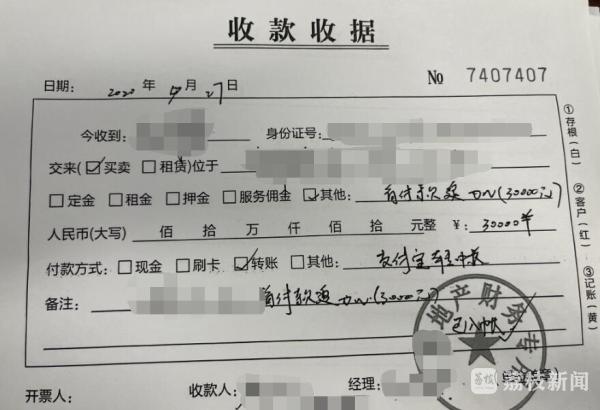 收款收据
日期：2020年 月27日 № 7407407
今收到： 身份证号：
交来（☑买卖 □租赁）位于
□定金 □租金 □押金 □服务佣金 ☑其他：首付款 (30000元)
人民币（大写） 佰 拾 万 仟 佰 拾 元整 ¥：30000
付款方式：□现金 □刷卡 ☑转账 □其他：支付宝
备注： 首付款
已入帐
地产财务专
开票人： 收款人： 经理：
①存根（白） ②客户（红） ③记账（黄）
荔枝新闻